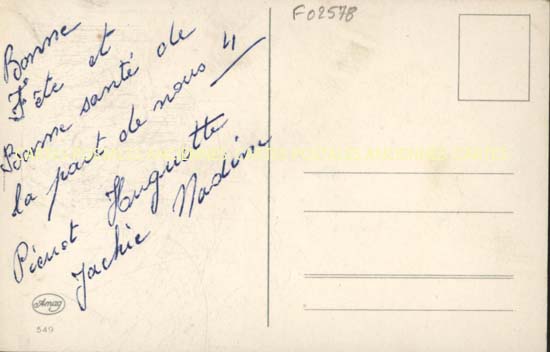 Bonne
Fête et
Bonne santé de
la part de nous 4
Pierrot Huguette
Jackie Nadine
F02578
Amag
549